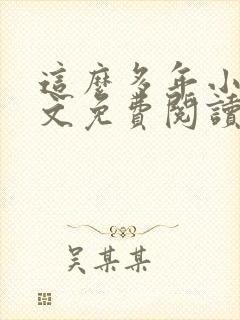 這麼多年小
文免費閱讀
吳某某